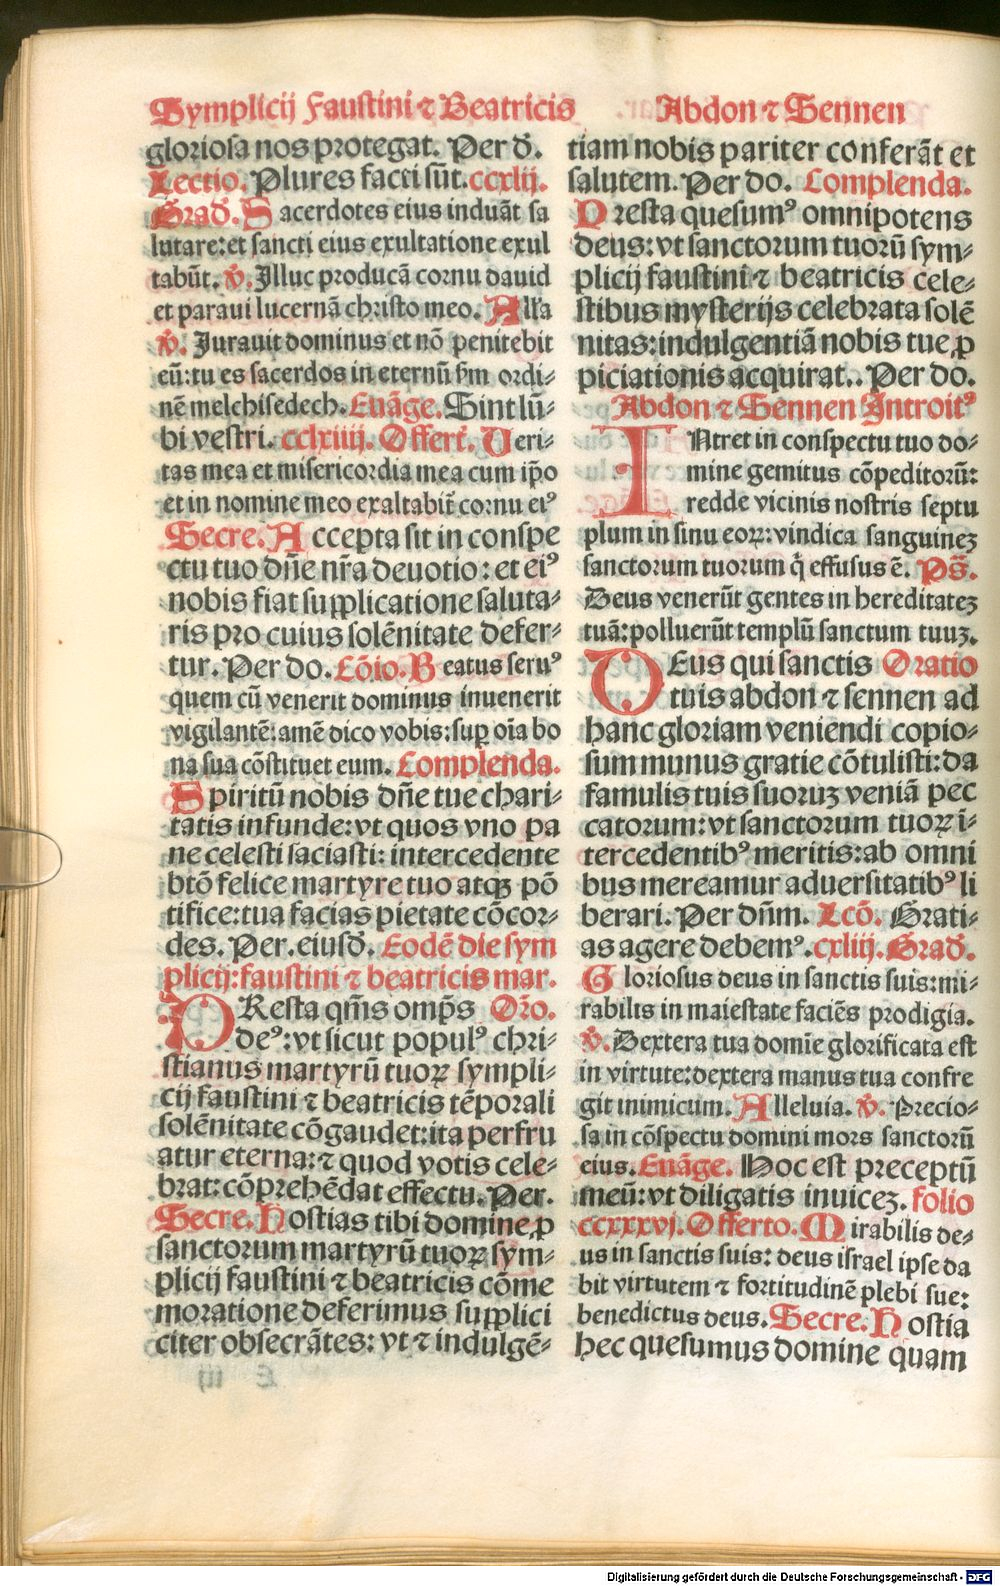 Symplicij Faustini ⁊ Beatricis
gloriosa nos protegat. Per d̄.
Lectio. Plures facti sūt. ccxlij.
Grad̄. Sacerdotes eius induāt sa
lutare: et sancti eius exultatione exul
tabūt. ℣. Illuc producā cornu dauid
et paraui lucernā christo meo. Alľa
℣. Jurauit dominus et nō penitebit
eū: tu es sacerdos in eternū ẜm ordi⸗
nē melchisedech. Euāge. Sint lū⸗
bi vestri. cclxiiij. Offert̄. Veri⸗
tas mea et misericordia mea cum ip̄o
et in nomine meo exaltabit̄ cornu eiꝰ
Secre. Accepta sit in conspe
ctu tuo dn̄e nr̄a deuotio: et eiꝰ
nobis fiat supplicatione saluta⸗
ris pro cuius solēnitate defer⸗
tur. Per do. Cōio. Beatus seruꝰ
quem cū venerit dominus inuenerit
vigilantē: amē dico vobis: suꝑ oīa bo
na sua cōstituet eum. Complenda.
Spiritū nobis dn̄e tue chari⸗
tatis infunde: vt quos vno pa
ne celesti saciasti: intercedente
btō felice martyre tuo atqꝫ pō
tifice: tua facias pietate cōcor⸗
des. Per. eiusd̄. Eodē die sym
plicij: faustini ⁊ beatricis mar.
PResta qm̄s omp̄s Or̄o.
deꝰ: vt sicut populꝰ chri⸗
stianus martyrū tuoꝝ sympli⸗
cij faustini ⁊ beatricis tēporali
solēnitate cōgaudet: ita perfru
atur eterna: ⁊ quod votis cele⸗
brat: cōprehēdat effectu. Per.
Secre. Hostias tibi domine ꝓ
sanctorum martyrū tuoꝝ sym⸗
plicij faustini ⁊ beatricis cōme
moratione deferimus supplici
citer obsecrātes: vt ⁊ indulgē⸗
Abdon ⁊ Sennen
tiam nobis pariter conferāt et
salutem. Per do. Complenda.
Presta quesumꝰ omnipotens
deus: vt sanctorum tuorū sym⸗
plicij faustini ⁊ beatricis cele⸗
stibus mysterijs celebrata solē
nitas: indulgentiā nobis tue ꝓ
piciationis acquirat.. Per do.
Abdon ⁊ Sennen Introitꝰ
INtret in conspectu tuo do⸗
mine gemitus cōpeditorū:
redde vicinis nostris septu
plum in sinu eoꝝ: vindica sanguineꝫ
sanctorum tuorum q̇ effusus ē. Ps̄.
Deus venerūt gentes in hereditateꝫ
tuā: polluerūt templū sanctum tuuꝫ.
DEus qui sanctis Oratio
tuis abdon ⁊ sennen ad
hanc gloriam veniendi copio⸗
sum munus gratie cōtulisti: da
famulis tuis suoruꝫ veniā pec
catorum: vt sanctorum tuoꝝ ī⸗
tercedentibꝰ meritis: ab omni
bus mereamur aduersitatibꝰ li
berari. Per dn̄m. Lcō. Grati⸗
as agere debemꝰ. cxliij. Grad̄.
Gloriosus deus in sanctis suis: mi⸗
rabilis in maiestate faciēs prodigia.
℣. Dextera tua domīe glorificata est
in virtute: dextera manus tua confre
git inimicum. Alleluia. ℣. Precio⸗
sa in cōspectu domini mors sanctorū
eius. Euāge. Hoc est preceptū
meū: vt diligatis inuiceꝫ. folio
ccxxxvj. Offerto. Mirabilis de⸗
us in sanctis suis: deus israel ipse da
bit virtutem ⁊ fortitudinē plebi sue:
benedictus deus. Secre. Hostia
hec quesumus domine quam
Digitalisierung gefördert durch die Deutsche Forschungsgemeinschaft - DFG